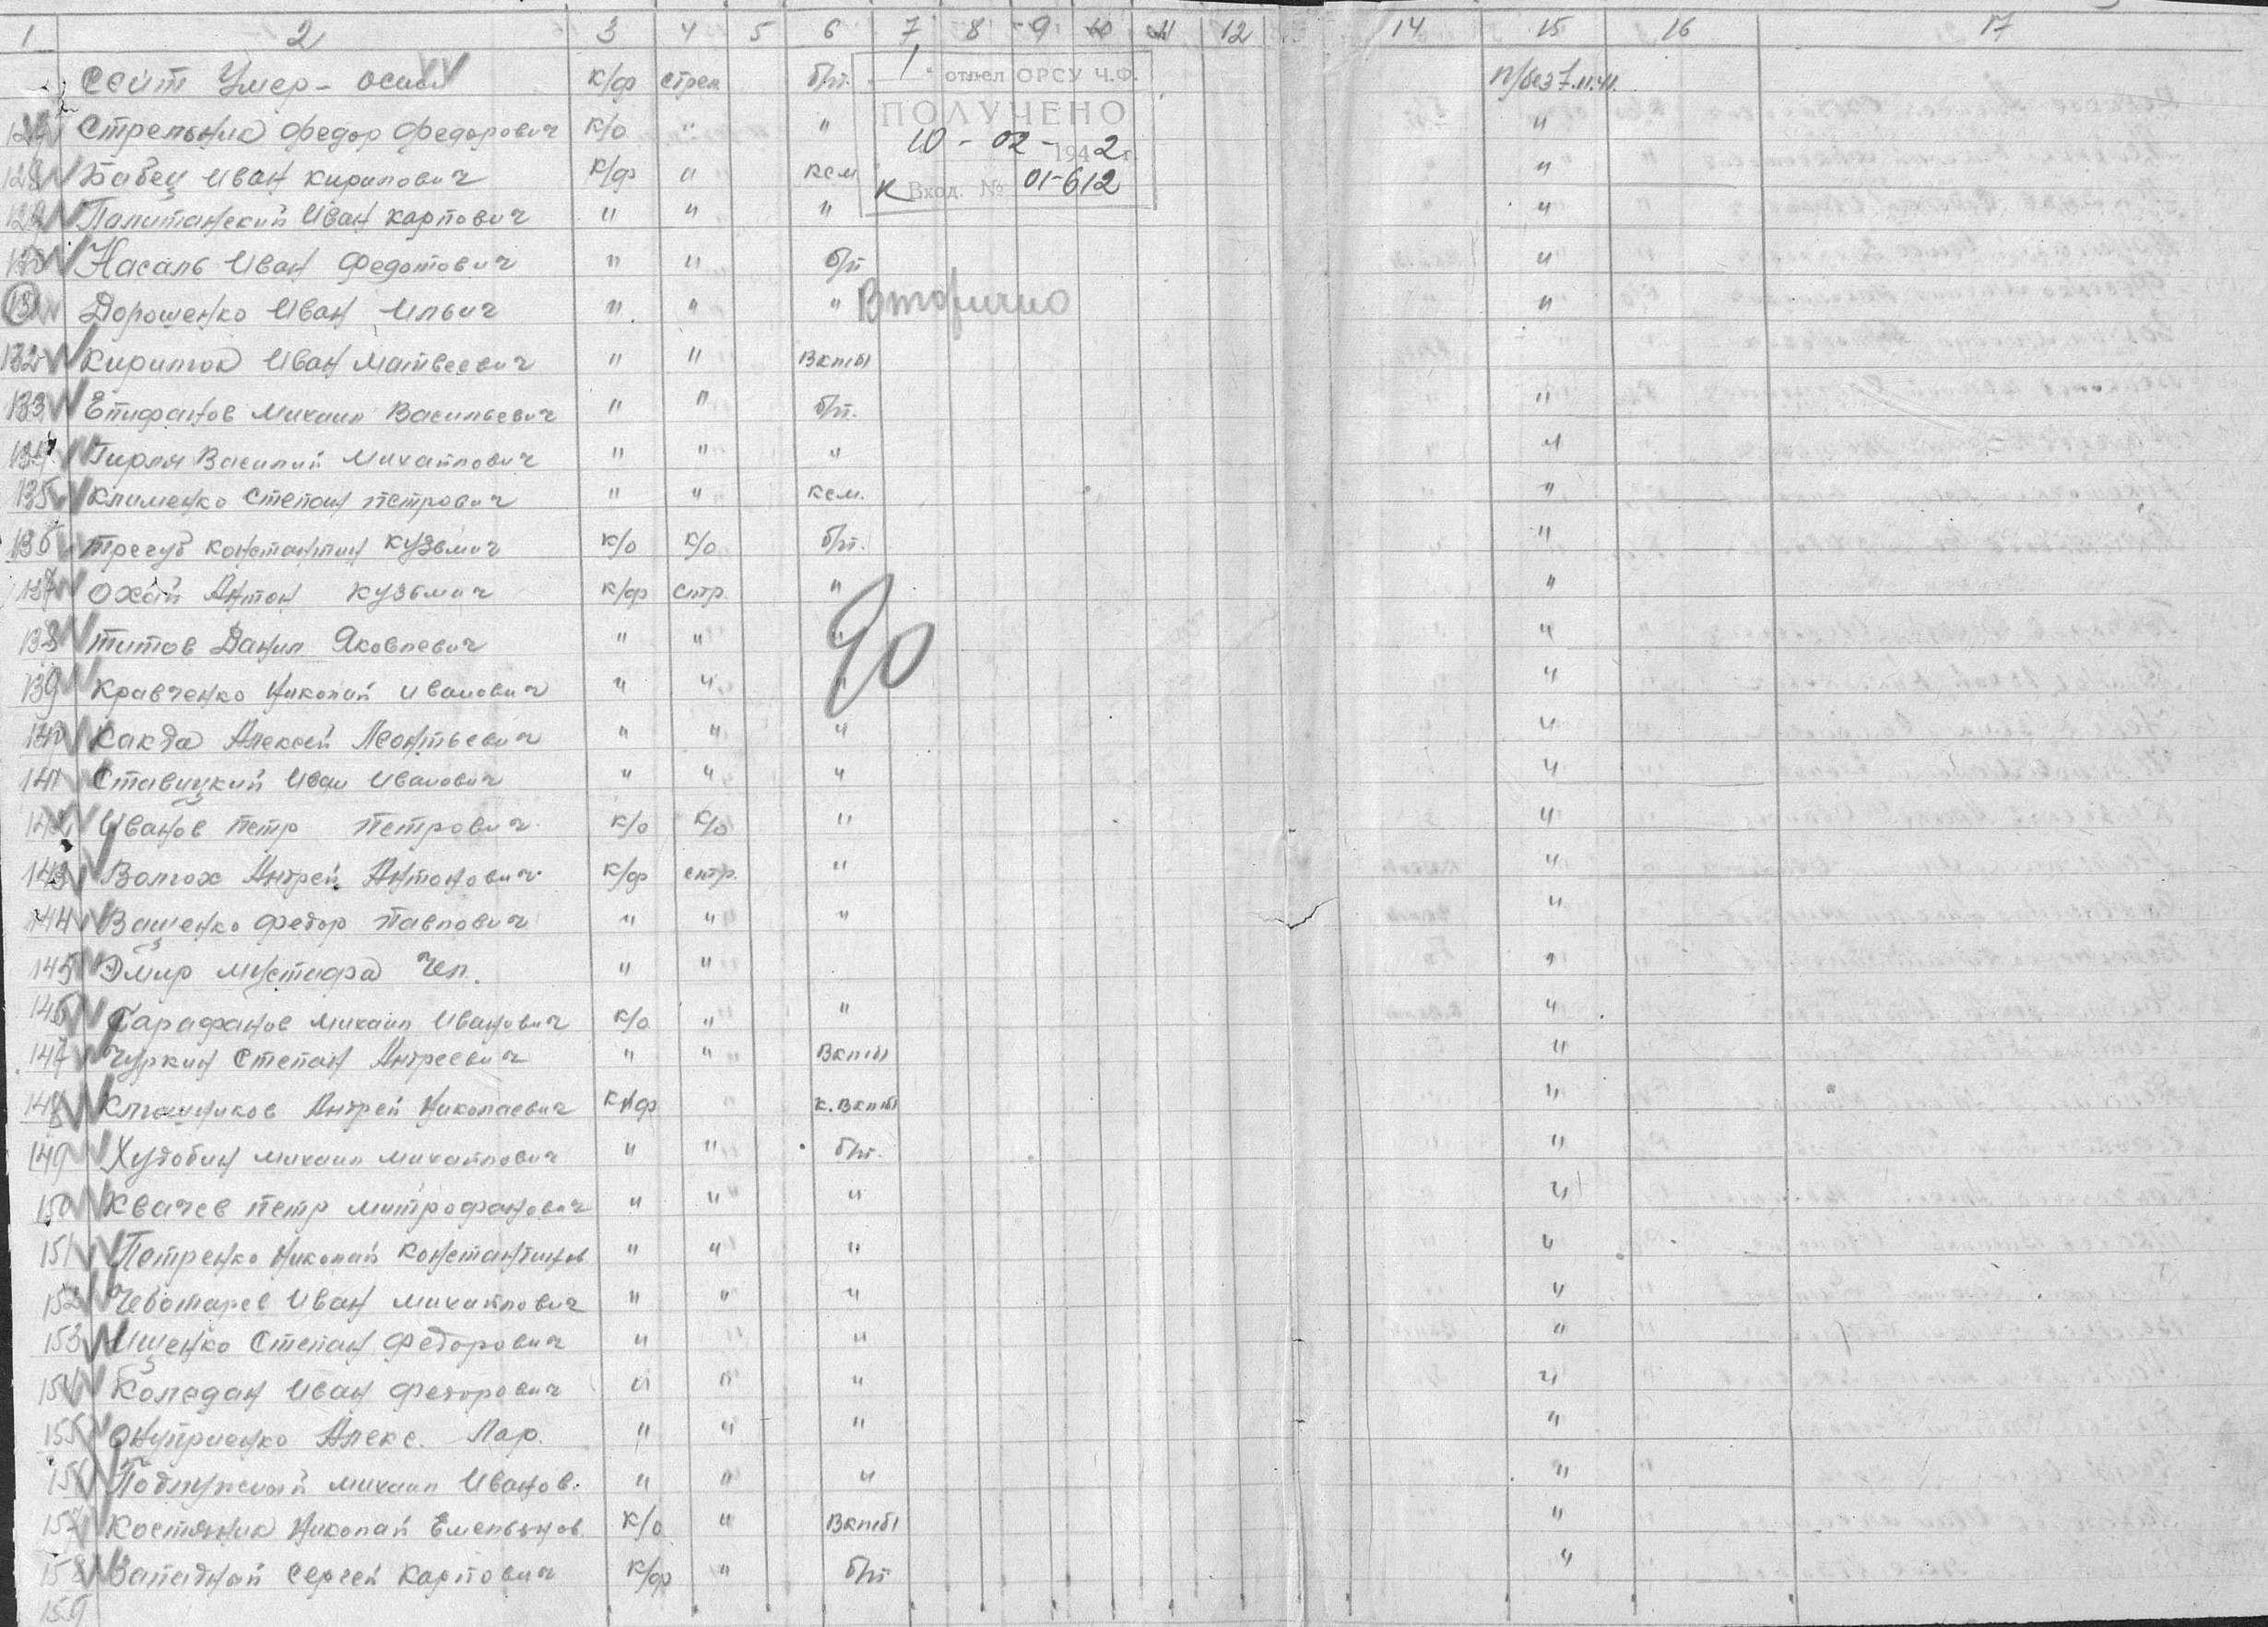 1 2 3 4 5 6 7 8 9 10 11 12 14 15 16 17
Сеит Умер - Осман к/ф стрел б/п. п/без 7.11.41.
1. отдел ОРСУ Ч.Ф.
ПОЛУЧЕНО
10 - 02 - 1942 г.
Вход. № 01-612
127 Стрельник Федор Федорович к/о " " "
128 Бабец Иван Кирилович к/ф " ксм "
129 Палитанский Иван Карпович " " " "
130 Насаль Иван Федотович " " б/п "
131 Дорошенко Иван Ильич " " " Вторично "
132 Кирилюк Иван Матвеевич " " Вкпб
133 Епифанов Михаил Васильевич " " б/п. "
134 Гирля Василий Михайлович " " " "
135 Клименко Степан Петрович " " ксм. "
136 Трегуб Константин Кузьмич к/о к/о б/п. "
137 Охай Антон Кузьмич к/ф стр. " "
90
138 Титов Данил Яковлевич " " " "
139 Кравченко Николай Иванович " " " "
140 Какда Алексей Леонтьевич " " " "
141 Ставицкий Иван Иванович " " " "
142 Иванов Петр Петрович к/о к/о " "
143 Волгох Андрей Антонович к/ф стр. " "
144 Ващенко Федор Павлович " " " "
145 Эмир Мустафа Чел. " " "
146 Сарафанов Михаил Иванович к/о " " "
147 Чуркин Степан Андреевич " " Вкпб "
148 Андрей Николаевич к/ф " к.Вкпб "
149 Худобин Михаил Михайлович " " б/п. "
150 Квачев Петр Митрофанович " " " "
151 Петренко Николай Константинов " " " "
152 Чеботарев Иван Михайлович " " " "
153 Ищенко Степан Федорович " " " "
154 Коледан Иван Федорович " " " "
155 Онуприенко Алекс. Лар. " " " "
156 Подлужный Михаил Иванов. " " " "
157 Костяник Николай Емельянов к/о " Вкпб "
158 Западной Сергей Карпович к/ф " б/п "
159